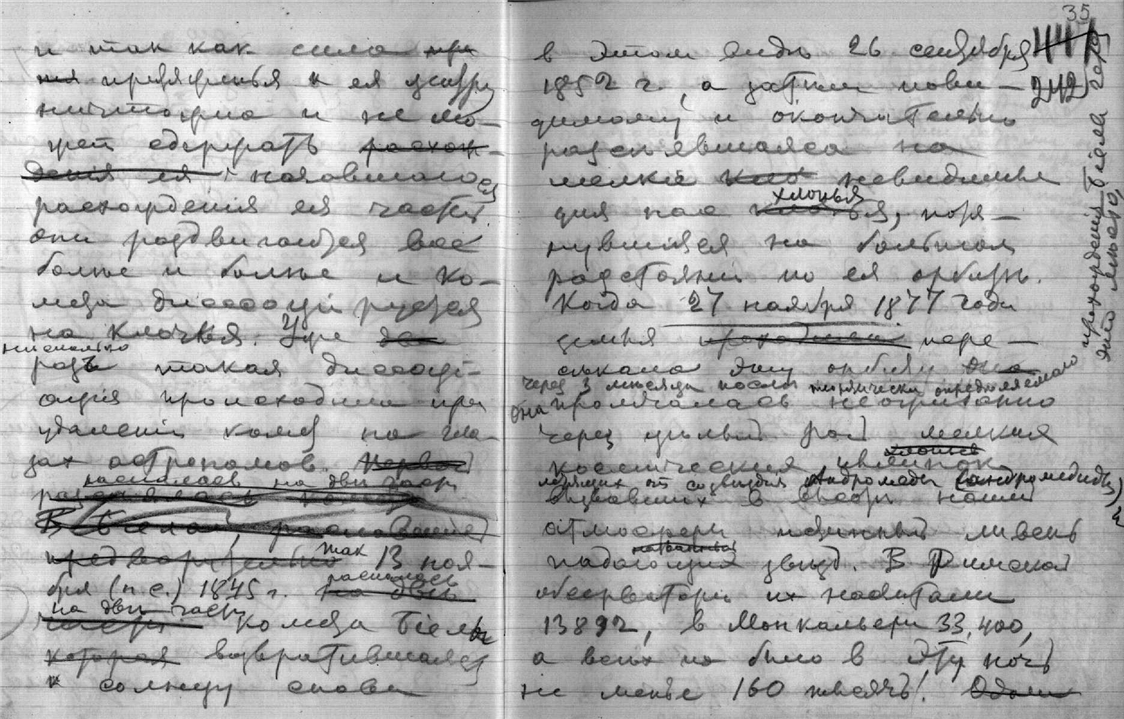 и так как сила при
тя притяженья к ея центру
ничтожна и не мо-
жет сдержать расхож-
дения ея, начавшагося
расхожденія ея частей
они раздвигаются все
болѣе и болѣе и ко-
мета диссоціируется
на клочья. Уже два
нѣсколько
разъ такая диссоці-
ація происходила при
удаленіи комет на гла-
зах астрономов.
распалась на двѣ части
В Біела, распавшаяся
предварительно так 13 ноя-
бря (н.с.) 1845 г. распалась на двѣ
на двѣ части
части комета Біелы
которая возвратившаяся
к солнцу снова
35
447
242
в этом видѣ 26 сентября
1852 г., а затѣм пови-
димому и окончательно
разсѣявшаяся на
мелкія невидимыя
для нас хлопья, протя-
нувшіяся на большом
разстояніи по ея орбитѣ.
Когда 27 ноября 1877 года
земля проходившая пере-
сѣкала эту орбиту она
через 3 мѣсяца послѣ теоретически опредѣляемаго
она промчалась неожиданно
через цѣлый рой мелких
космических
летящих от созвѣздія Андромеды (андромедиды)
вызвавших в высотѣ нашей
атмосферы цѣлый ливень
падающих звѣзд. В Римской
обсерваторіи их насчитали
13892, в Монкальери 33,400,
а всѣх их было в эту ночь
не менѣе 160 тысячъ!
прохожденія Біела
это мѣсто,